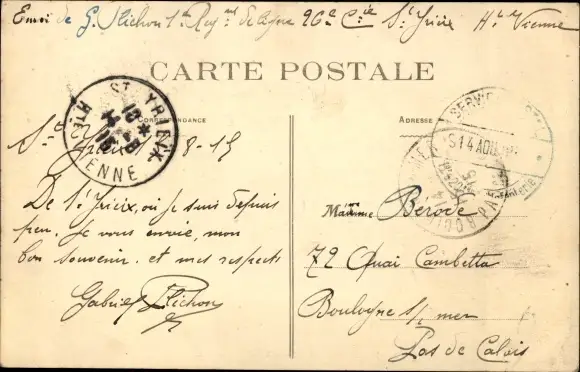 Envoi de G. Plichon 1er Regmt de ligne 26e Cie St Yrieix Hte Vienne
CARTE POSTALE
CORRESPONDANCE
ADRESSE
ST YRIEIX
HTE VIENNE
S 14 AOU
St Yrieix 8-15
De St Yrieix, où je suis depuis
peu, je vous envoie, mon
bon souvenir et mes respects
Gabriel Plichon
Madame Bérode
72 Quai Gambetta
Boulogne s/ mer
Pas de Calais